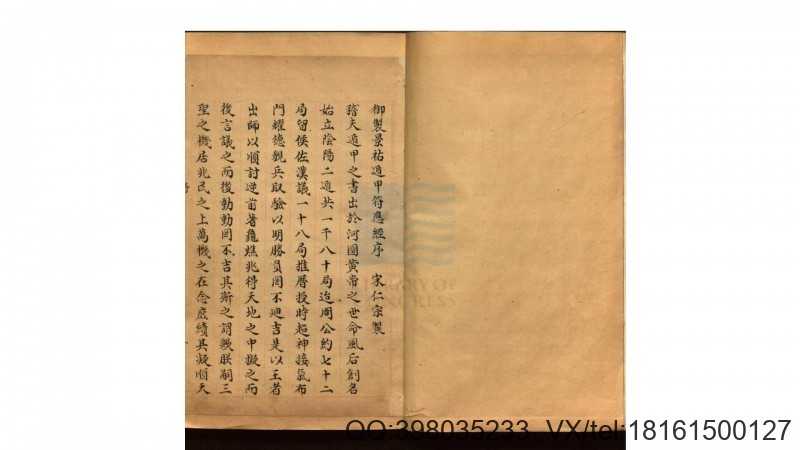 御製景祐遁甲符應經序　宋仁宗製
稽夫遁甲之書出於河圖黃帝之世命風后創名
始立陰陽二遁共一千八十局迨周公約七十二
局留侯佐漢議一十八局推曆授時超神接氣布
門耀德觀兵取驗以明勝負罔不迪吉是以王者
出師以順討逆前著龜燋兆得天地之中擬之而
後言議之而後動動罔不吉其斯之謂歟朕嗣三
聖之機居兆民之上萬機之在念庶績其凝順天
LIBRARY OF
CONGRESS
QQ:398035233 VX/tel:18161500127